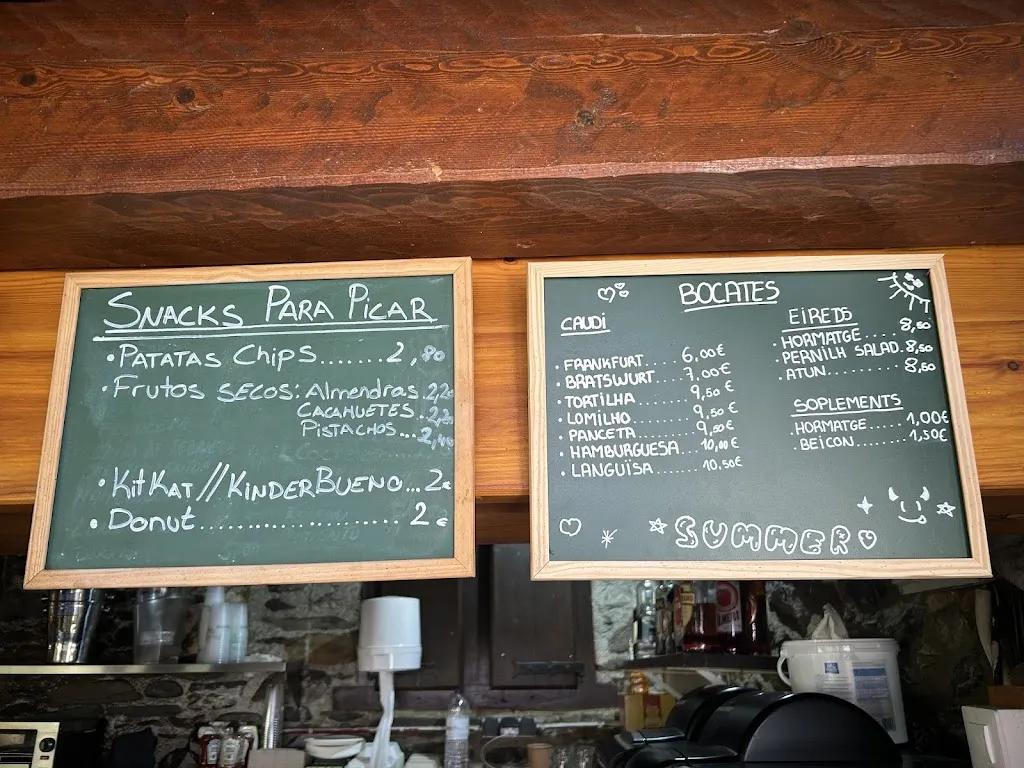 SNACKS PARA PICAR
• PATATAS CHIPS.......2,80
• FRUTOS SECOS: Almendras. 2,2
CACAHUETES. 2,2
PISTACHOS... 2,
• KITKAT // KINDERBUENO...2€
• DONUT.........................2€
BOCATES
CAUDI
• FRANKFURT.... 6,00€
• BRATSWURT.... 7,00€
• TORTILHA 9,50€
• LOMILHO 9,50€
• PANCETA 9,50€
• HAMBURGUESA 10,00€
• LANGUÏSA....... 10,50€
EIREDS
• HORMATGE.... 8,50
• PERNILH SALAD. 8,50
• ATUN......... 8,50
SOPLEMENTS
• HORMATGE...... 1,00€
• BEICON........ 1,50€
SUMMER